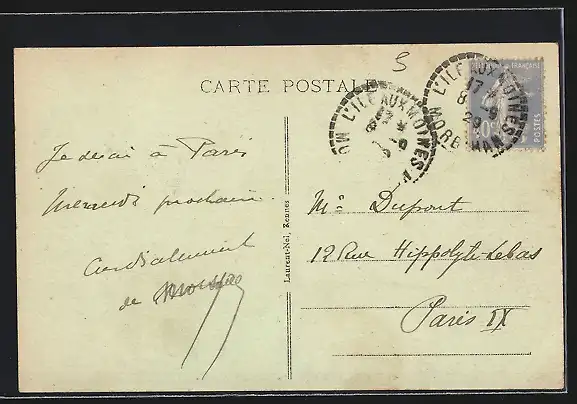 5
CARTE POSTALE
L'ILE AUX MOINES
MORBIHAN
17 *
8 - 9
29
L'ILE AUX MOINES
POSTES
Je serai à Paris
Mercredi prochain.
Cordialement
de
Laurent-Nel, Rennes
Mr Dupont
12 Rue Hippolyte-Lebas
Paris IX